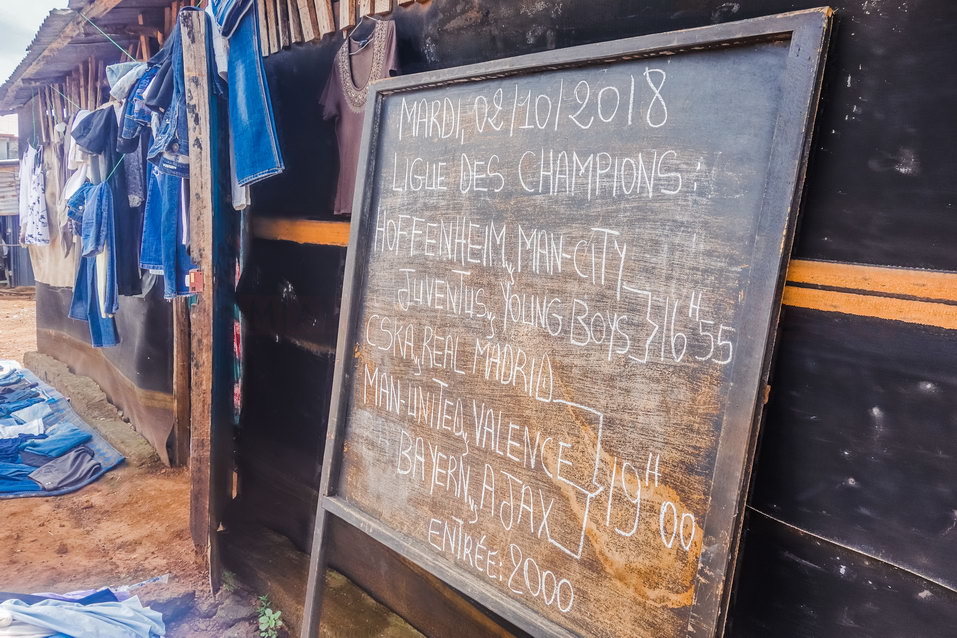 MARDI, 02/10/2018
LIGUE DES CHAMPIONS:
HOFFENHEIM, MAN-CITY
JUVENTUS, YOUNG BOYS 16H55
CSKA, REAL MADRID
MAN-UNITED, VALENCE 19H00
BAYERN, AJAX
ENTRÉE: 2000